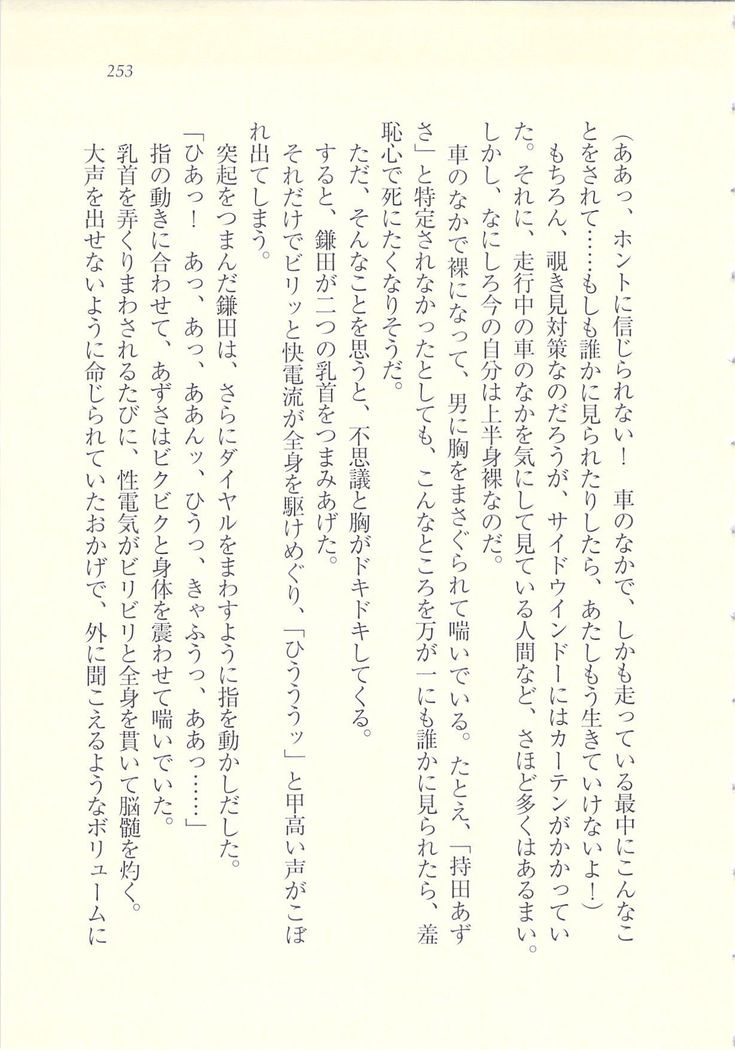 253
(ああっ、ホントに信じられない！　車のなかで、しかも走っている最中にこんなこ
とをされて……もしも誰かに見られたりしたら、あたしもう生きていけないよ！)
もちろん、覗き見対策なのだろうが、サイドウインドーにはカーテンがかかってい
た。それに、走行中の車のなかを気にして見ている人間など、さほど多くはあるまい。
しかし、なにしろ今の自分は上半身裸なのだ。
車のなかで裸になって、男に胸をまさぐられて喘いでいる。たとえ、「持田あず
さ」と特定されなかったとしても、こんなところを万が一にも誰かに見られたら、羞
恥心で死にたくなりそうだ。
ただ、そんなことを思うと、不思議と胸がドキドキしてくる。
すると、鎌田が二つの乳首をつまみあげた。
それだけでビリッと快電流が全身を駆けめぐり、「ひうううッ」と甲高い声がこぼ
れ出てしまう。
突起をつまんだ鎌田は、さらにダイヤルをまわすように指を動かしだした。
「ひあっ！　あっ、あっ、ああんッ、ひうっ、きゃふうっ、ああっ……」
指の動きに合わせて、あずさはビクビクと身体を震わせて喘いでいた。
乳首を弄くりまわされるたびに、性電気がビリビリと全身を貫いて脳髄を灼く。
大声を出せないように命じられていたおかげで、外に聞こえるようなボリュームに